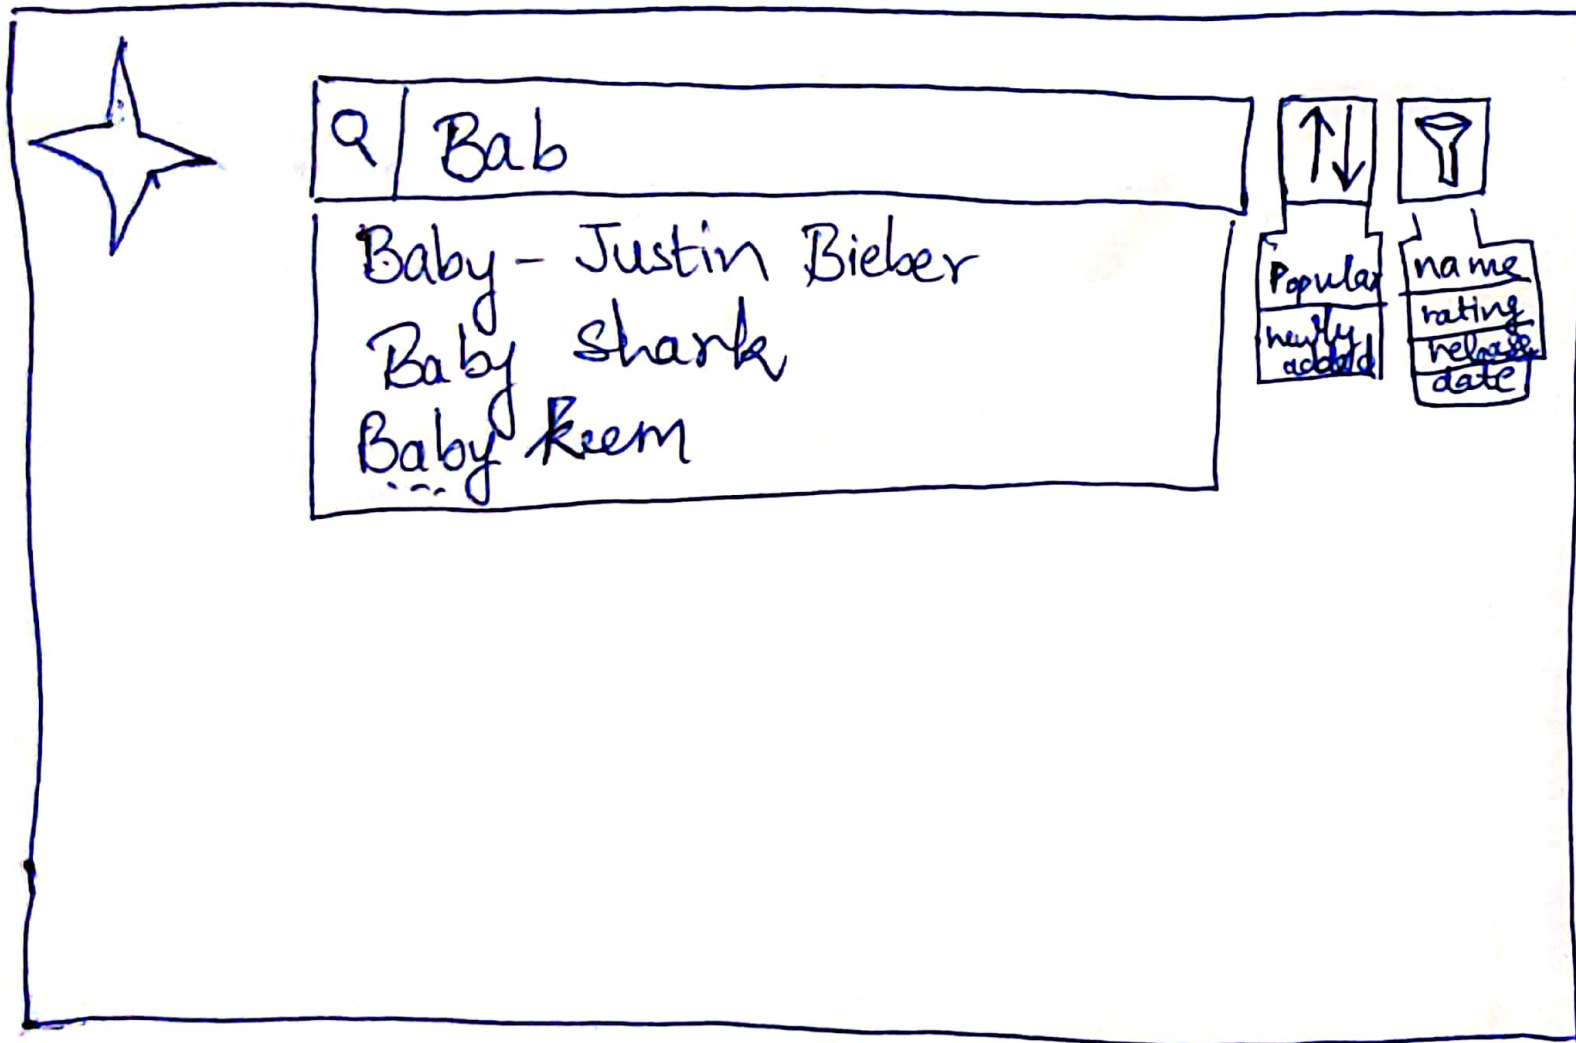 Bab
Baby - Justin Bieber
Baby Shark
Baby Keem
...
Popular
newly
added
name
rating
release
date